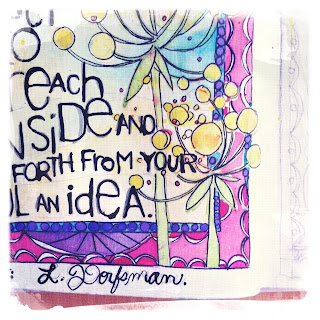 O
REACH
NSIDE AND
FORTH FROM YOUR
UL AN IDEA.
: L. Dorfsman.